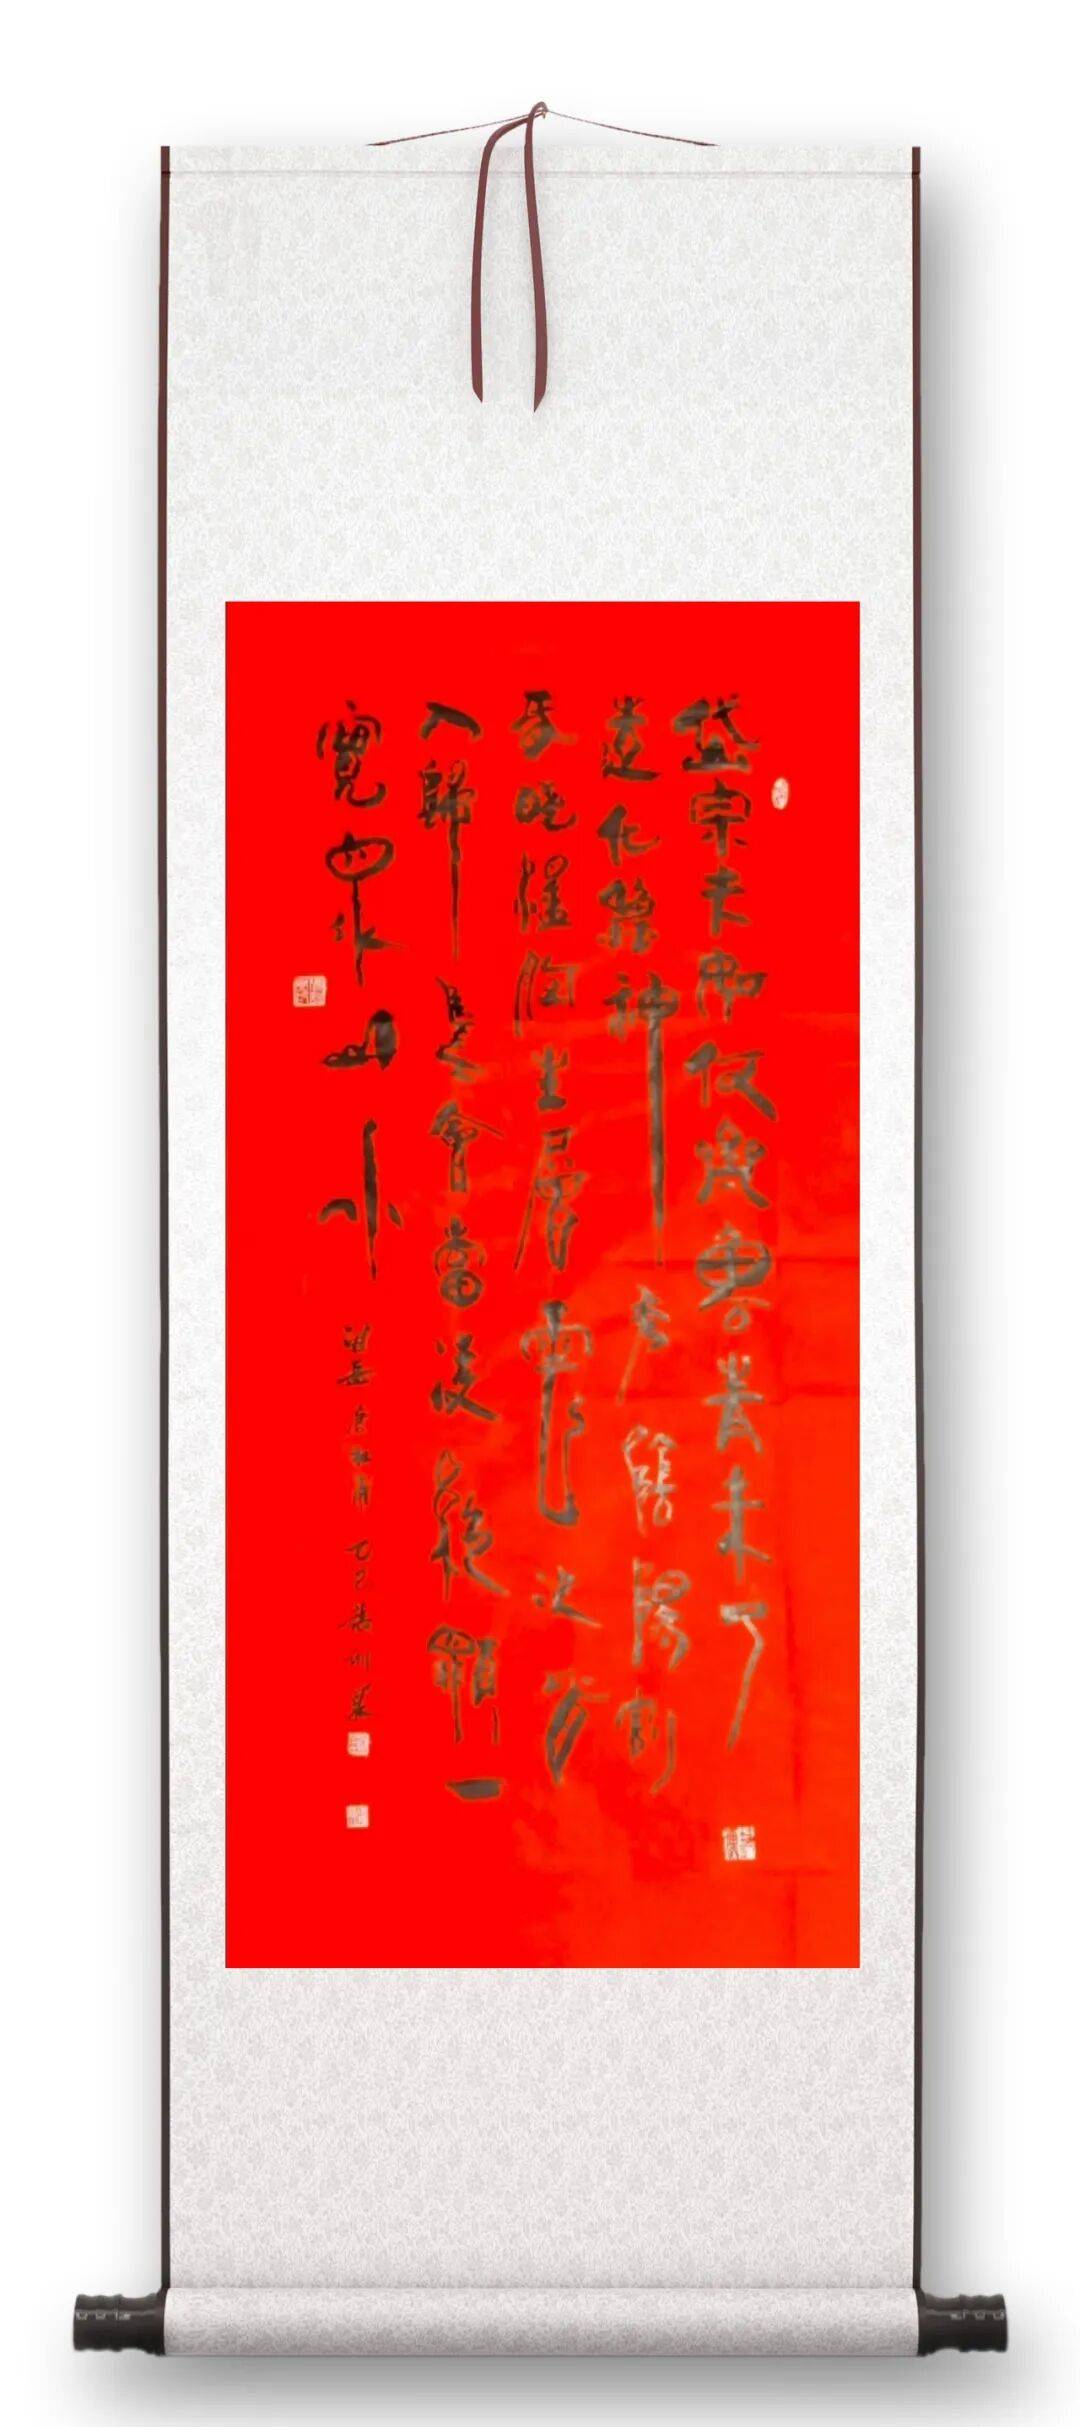 岱宗夫如何齊魯青未了
造化鍾神秀陰陽割
昏曉盪胸生層雲決眥
入歸鳥會當凌絕頂一
覽眾山小
望岳 唐杜甫 乙巳